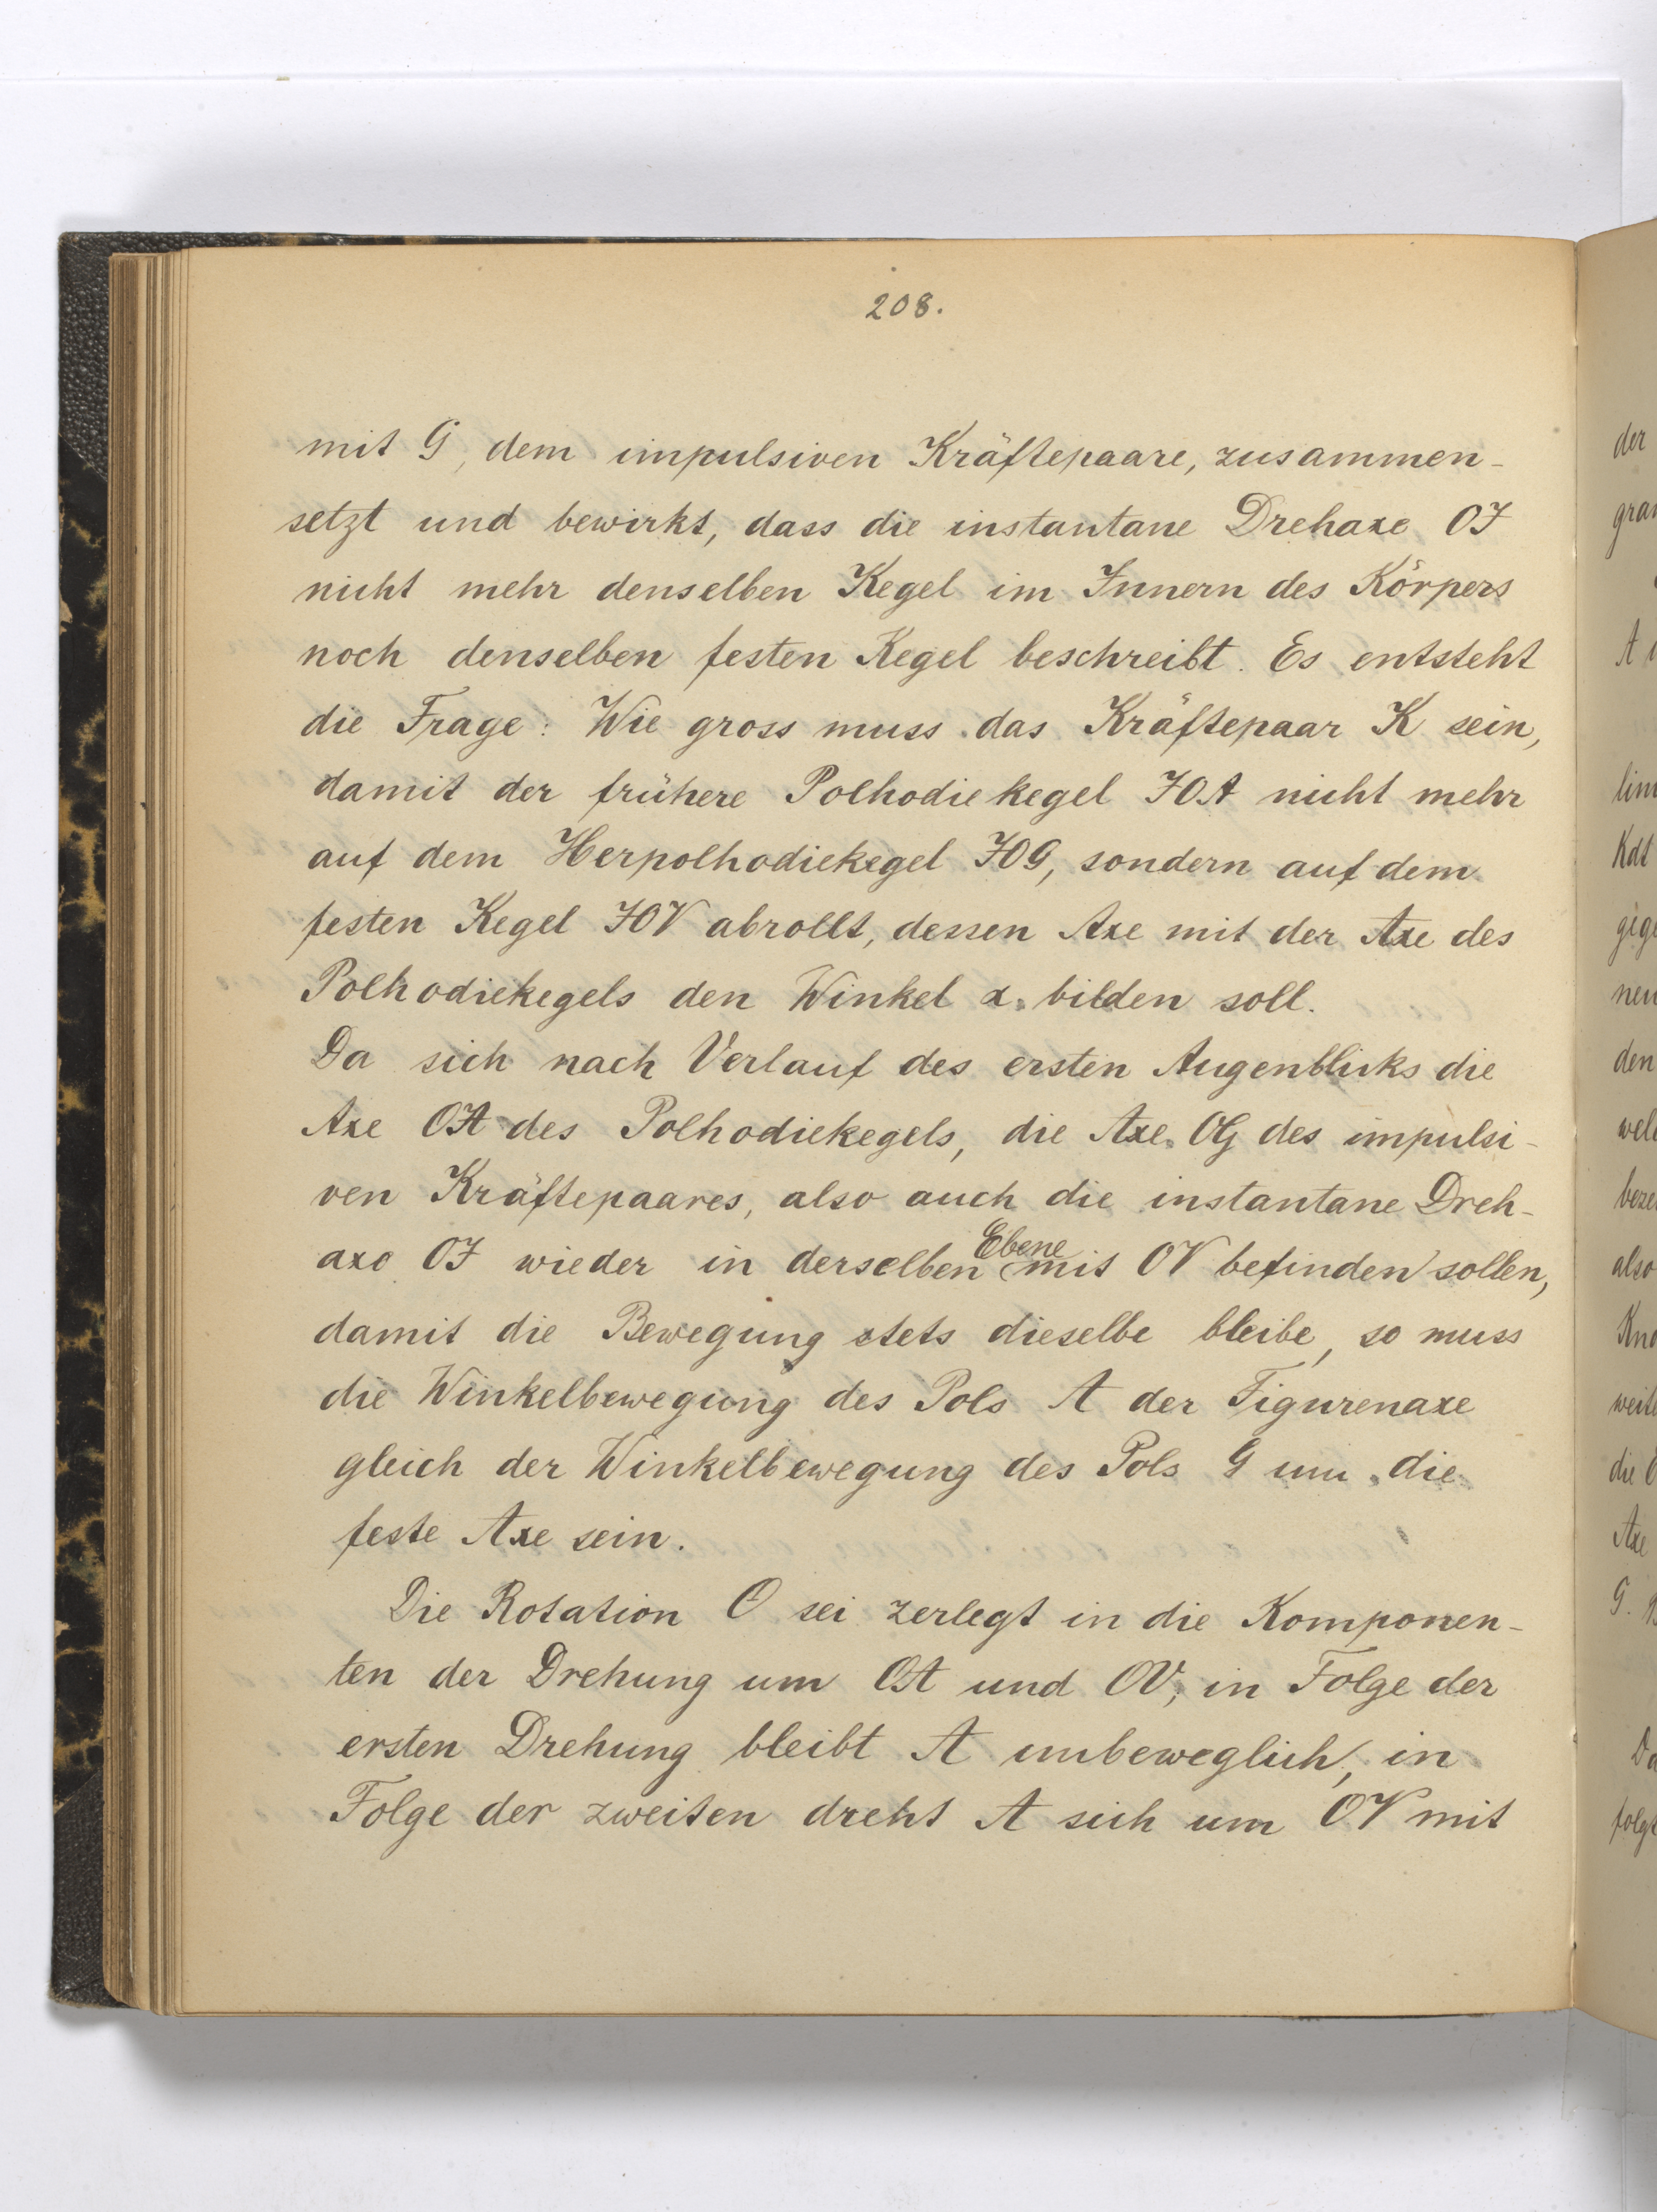 208.
mit G, dem impulsiven Kräftepaare, zusammen-
setzt und bewirkt, dass die instantane Drehaxe OJ
nicht mehr denselben Kegel im Innern des Körpers
noch denselben festen Kegel beschreibt. Es entsteht
die Frage: Wie gross muss das Kräftepaar K sein,
damit der frühere Polhodiekegel JOA nicht mehr
auf dem Herpolhodiekegel JOG, sondern auf dem
festen Kegel JOV abrollt, dessen Axe mit der Axe des
Polhodiekegels den Winkel α bilden soll.
Da sich nach Verlauf des ersten Augenblicks die
Axe OA des Polhodiekegels, die Axe OG des impulsi-
ven Kräftepaares, also auch die instantane Dreh-
axe OJ wieder in derselben Ebene mit OV befinden sollen,
damit die Bewegung stets dieselbe bleibe, so muss
die Winkelbewegung des Pols A der Figurenaxe
gleich der Winkelbewegung des Pols G um die
feste Axe sein.
Die Rotation O sei zerlegt in die Komponen-
ten der Drehung um OA und OV; in Folge der
ersten Drehung bleibt A unbeweglich, in
Folge der zweiten dreht A sich um OV mit
der
A
den
also
die
Axe
G.